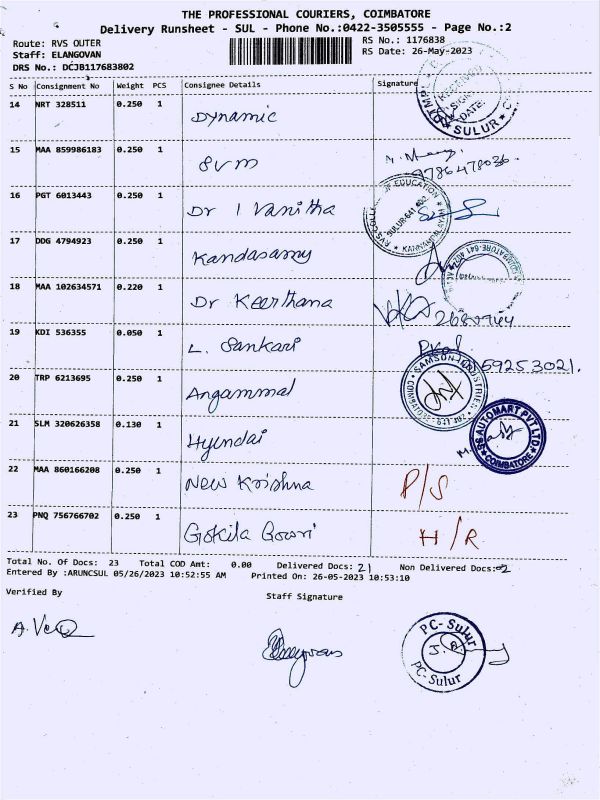 THE PROFESSIONAL COURIERS, COIMBATORE
Delivery Runsheet - SUL - Phone No.:0422-3505555 - Page No.:2
Route: RVS OUTER
RS No.: 1176838
Staff: ELANGOVAN
RS Date: 26-May-2023
DRS No.: DCJB117683802
S No Consignment No Weight PCS Consignee Details Signature
14 NRT 328511 0.250 1 Dynamic
SULUR
15 MAA 859986183 0.250 1 SVM
9786478036.
16 PGT 6013443 0.250 1 Dr I Vanitha
RVS COLLEGE OF EDUCATION
SULUR-641 402.
17 DDG 4794923 0.250 1 Kandasamy
18 MAA 102634571 0.220 1 Dr Keerthana
19 KDI 536355 0.050 1 L. Sankari
20 TRP 6213695 0.250 1 Angammal
SAMSON INDUSTRIES
COIMBATORE - 641 402
21 SLM 320626358 0.130 1 Hyundai
SS AUTOMART PVT LTD.
COIMBATORE
22 MAA 860166208 0.250 1 New Krishna P/S
23 PNQ 756766702 0.250 1 Gokila Gowri H/R
Total No. Of Docs: 23 Total COD Amt: 0.00 Delivered Docs: 21 Non Delivered Docs: 02
Entered By :ARUNCSUL 05/26/2023 10:52:55 AM Printed On: 26-05-2023 10:53:10
Verified By Staff Signature
PC- Sulur
PC- Sulur